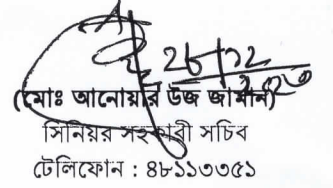 (মোঃ আনোয়ার উজ জামান)
সিনিয়র সহকারী সচিব
টেলিফোন : ৪৮১১০৩৫১